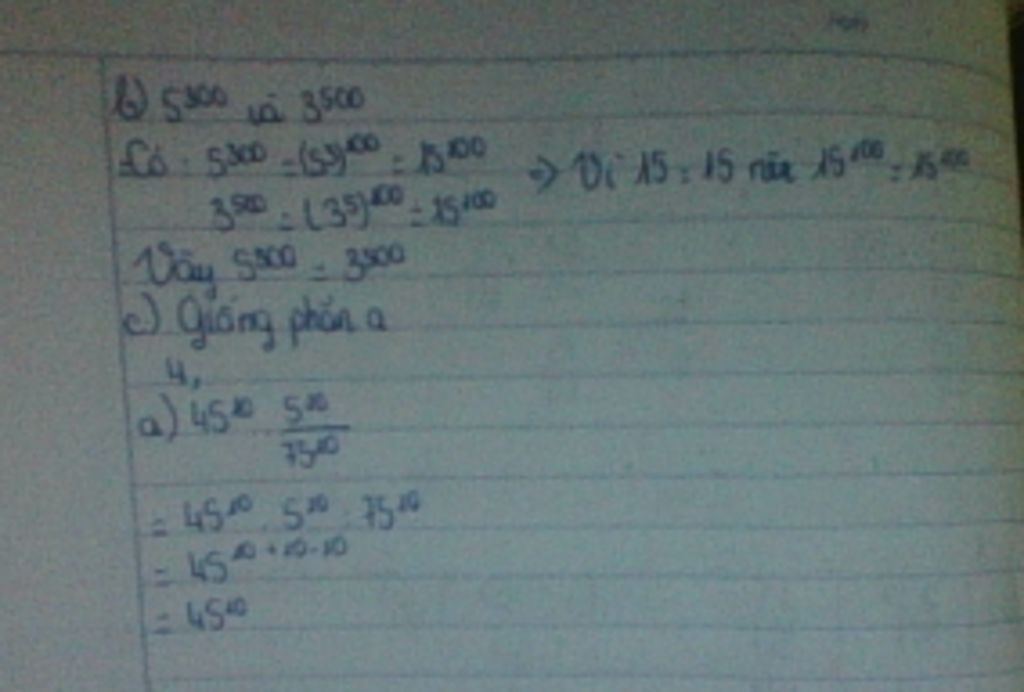 b) 5³⁰⁰ và 3⁵⁰⁰
Có : 5³⁰⁰ = (5³)¹⁰⁰ = 15¹⁰⁰ => Vì 15 = 15 nên 15¹⁰⁰ = 15¹⁰⁰
3⁵⁰⁰ = (3⁵)¹⁰⁰ = 15¹⁰⁰
Vậy 5³⁰⁰ = 3⁵⁰⁰
c) Giống phần a
4,
a) 45¹⁰ . 5²⁰ / 75¹⁰
= 45¹⁰ . 5²⁰ . 75¹⁰
= 45
= 45